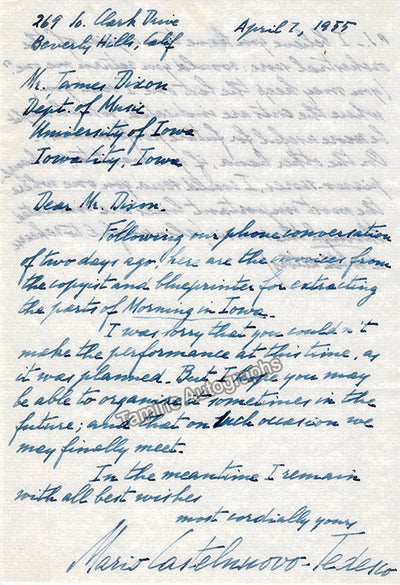 269 So. Clark Drive
April 7, 1955
Beverly Hills, Calif
Mr. James Dixon
Dept. of Music
University of Iowa
Iowa City, Iowa
Dear Mr. Dixon.
Following our phone conversation
of two days ago, here are the invoices from
the copyist and blueprinter for extracting
the parts of Morning in Iowa.
I was sorry that you couldn't
make the performance at this time, as
it was planned. But I hope you may
be able to organise it sometimes in the
Tamino Autographs
future; and that on such occasion we
may finally meet.
In the meantime I remain
with all best wishes
most cordially yours
Mario Castelnuovo-Tedesco